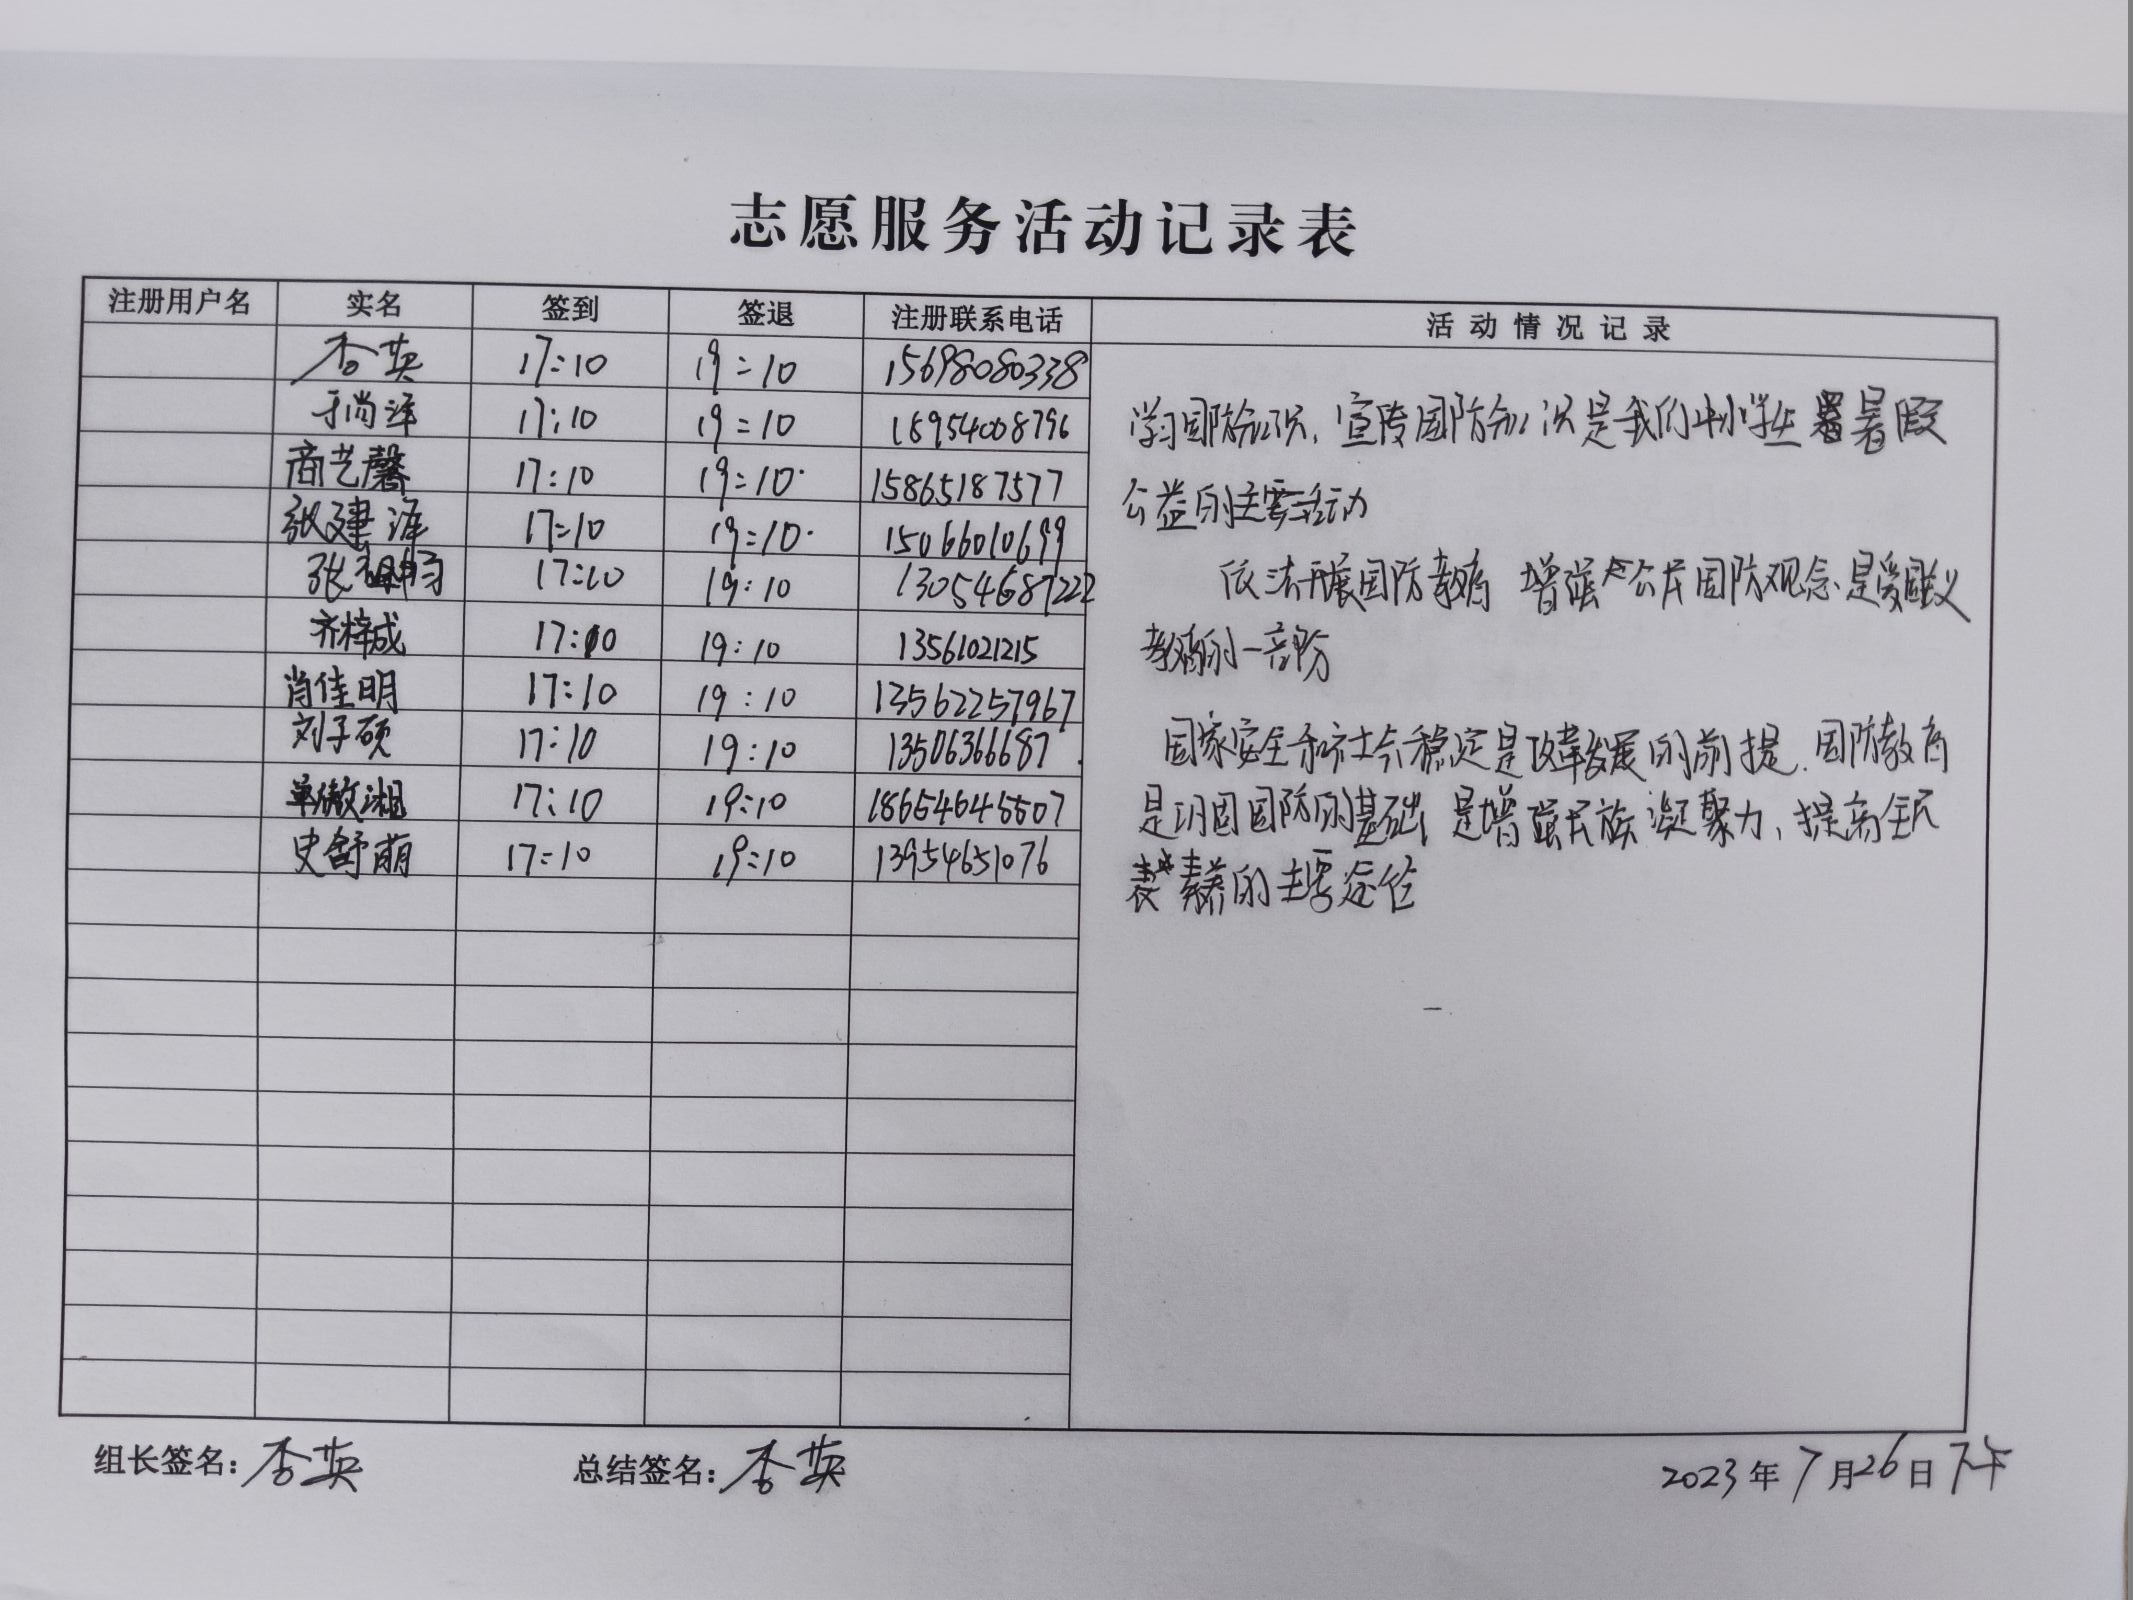 志愿服务活动记录表
注册用户名 实名 签到 签退 注册联系电话 活动情况记录
李英 17:10 19:10 15698080338
于尚泽 17:10 19:10 18954008796
商艺馨 17:10 19:10 15865187577
张建淮 17:10 19:10 15066010699
张 17:10 19:10 13054687222
齐梓成 17:10 19:10 13561021215
肖佳明 17:10 19:10 13562257967
刘子硕 17:10 19:10 13506366687
单傲湘 17:10 19:10 18654645507
史舒萌 17:10 19:10 13954651076
学习国防知识、宣传国防知识是我们中小学生暑假
公益的主要活动
依法开展国防教育 增强公民国防观念是爱国主义
教育的一部分
国家安全和社会稳定是改革发展的前提.国防教育
是巩固国防的基础 是增强民族凝聚力、提高全民
素养的主要途径
组长签名：李英 总结签名：李英 2023年7月26日下午